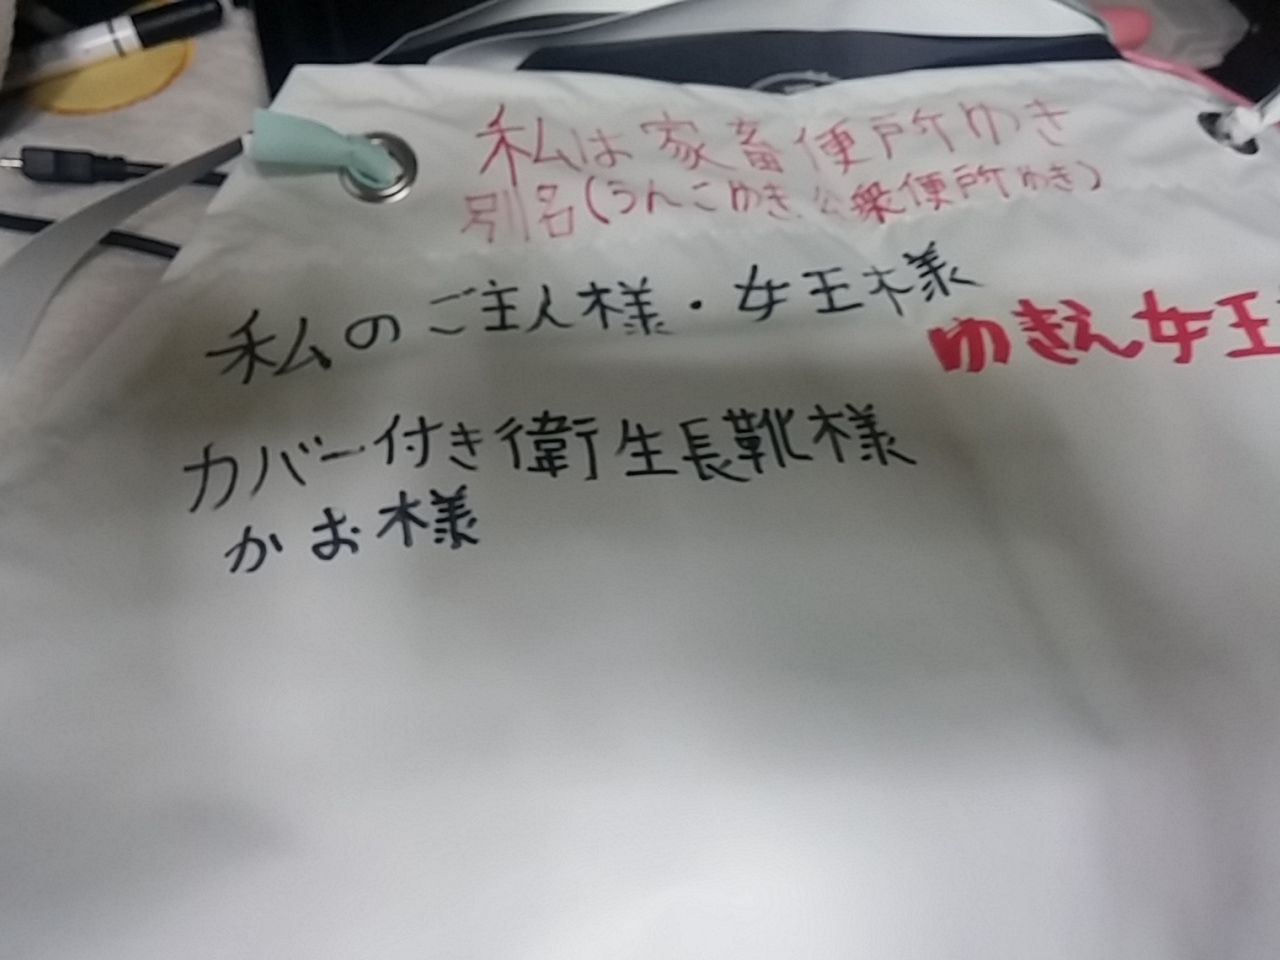 私は家畜便所ゆき
別名(うんこゆき、公衆便所ゆき)
私のご主人様・女王様
ゆきえ女王
カバー付き衛生長靴様
かお様